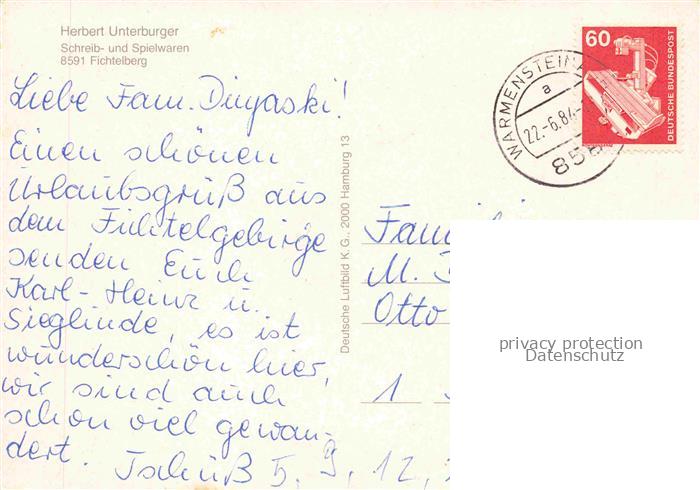 Herbert Unterburger
Schreib- und Spielwaren
8591 Fichtelberg
Liebe Fam. Dinjaski!
Einen schönen
Urlaubsgruß aus
dem Fichtelgebirge
senden Euch
Karl-Heinz u.
Sieglinde, es ist
wunderschön hier,
wir sind auch
schon viel gewan-
dert. Tschüß
Deutsche Luftbild K.G., 2000 Hamburg 13
WARMENSTEINA
a
22.-6.84
858
60
DEUTSCHE BUNDESPOST
Fami
M.
Otto
1
privacy protection
Datenschutz